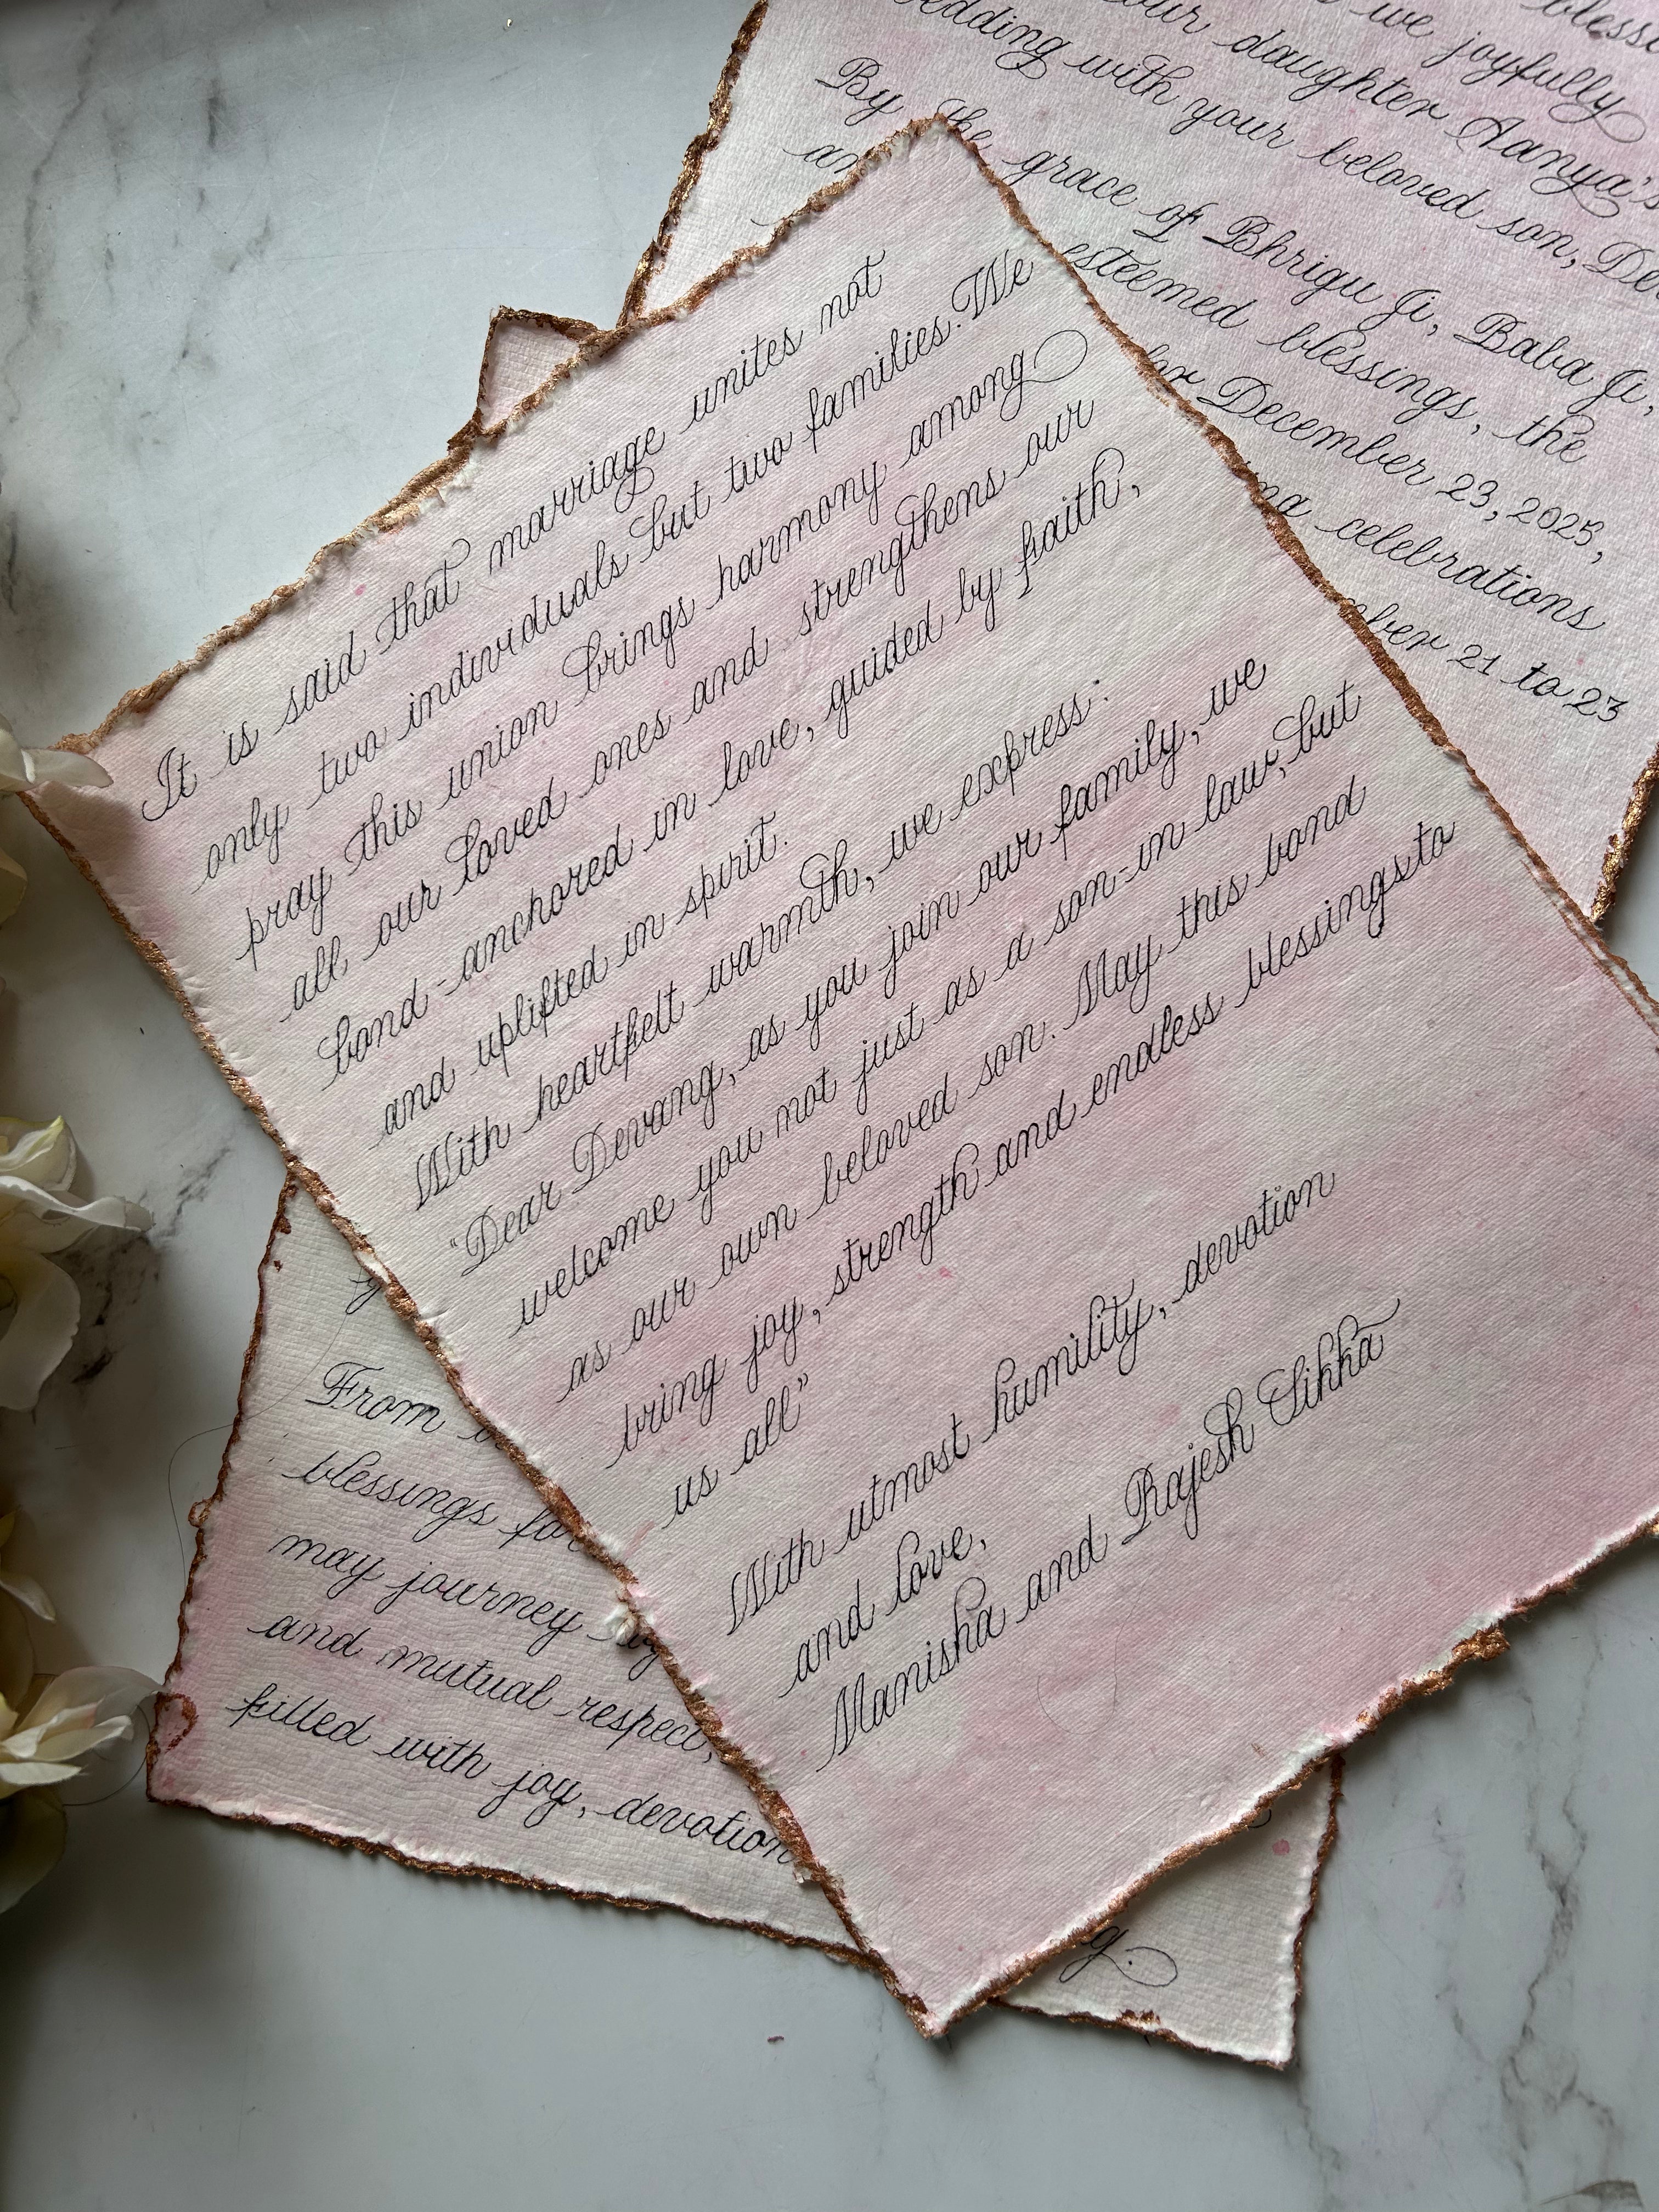 blessi
we joyfully
our daughter Aanya's
wedding with your beloved son, De
By the grace of Bhrigu Ji, Baba Ji,
an esteemed blessings, the
for December 23, 2025,
celebrations
ber 21 to 23
It is said that marriage unites not
only two individuals but two families. We
pray this union brings harmony among
all our loved ones and strengthens our
bond - anchored in love, guided by faith,
and uplifted in spirit.
With heartfelt warmth, we express:
"Dear Devang, as you join our family, we
welcome you not just as a son-in law, but
as our own beloved son. May this bond
bring joy, strength and endless blessings to
us all"
With utmost humility, devotion
and love,
Manisha and Rajesh Sikka
y
From
blessings for
may journey
and mutual respect,
filled with joy, devotion
g.